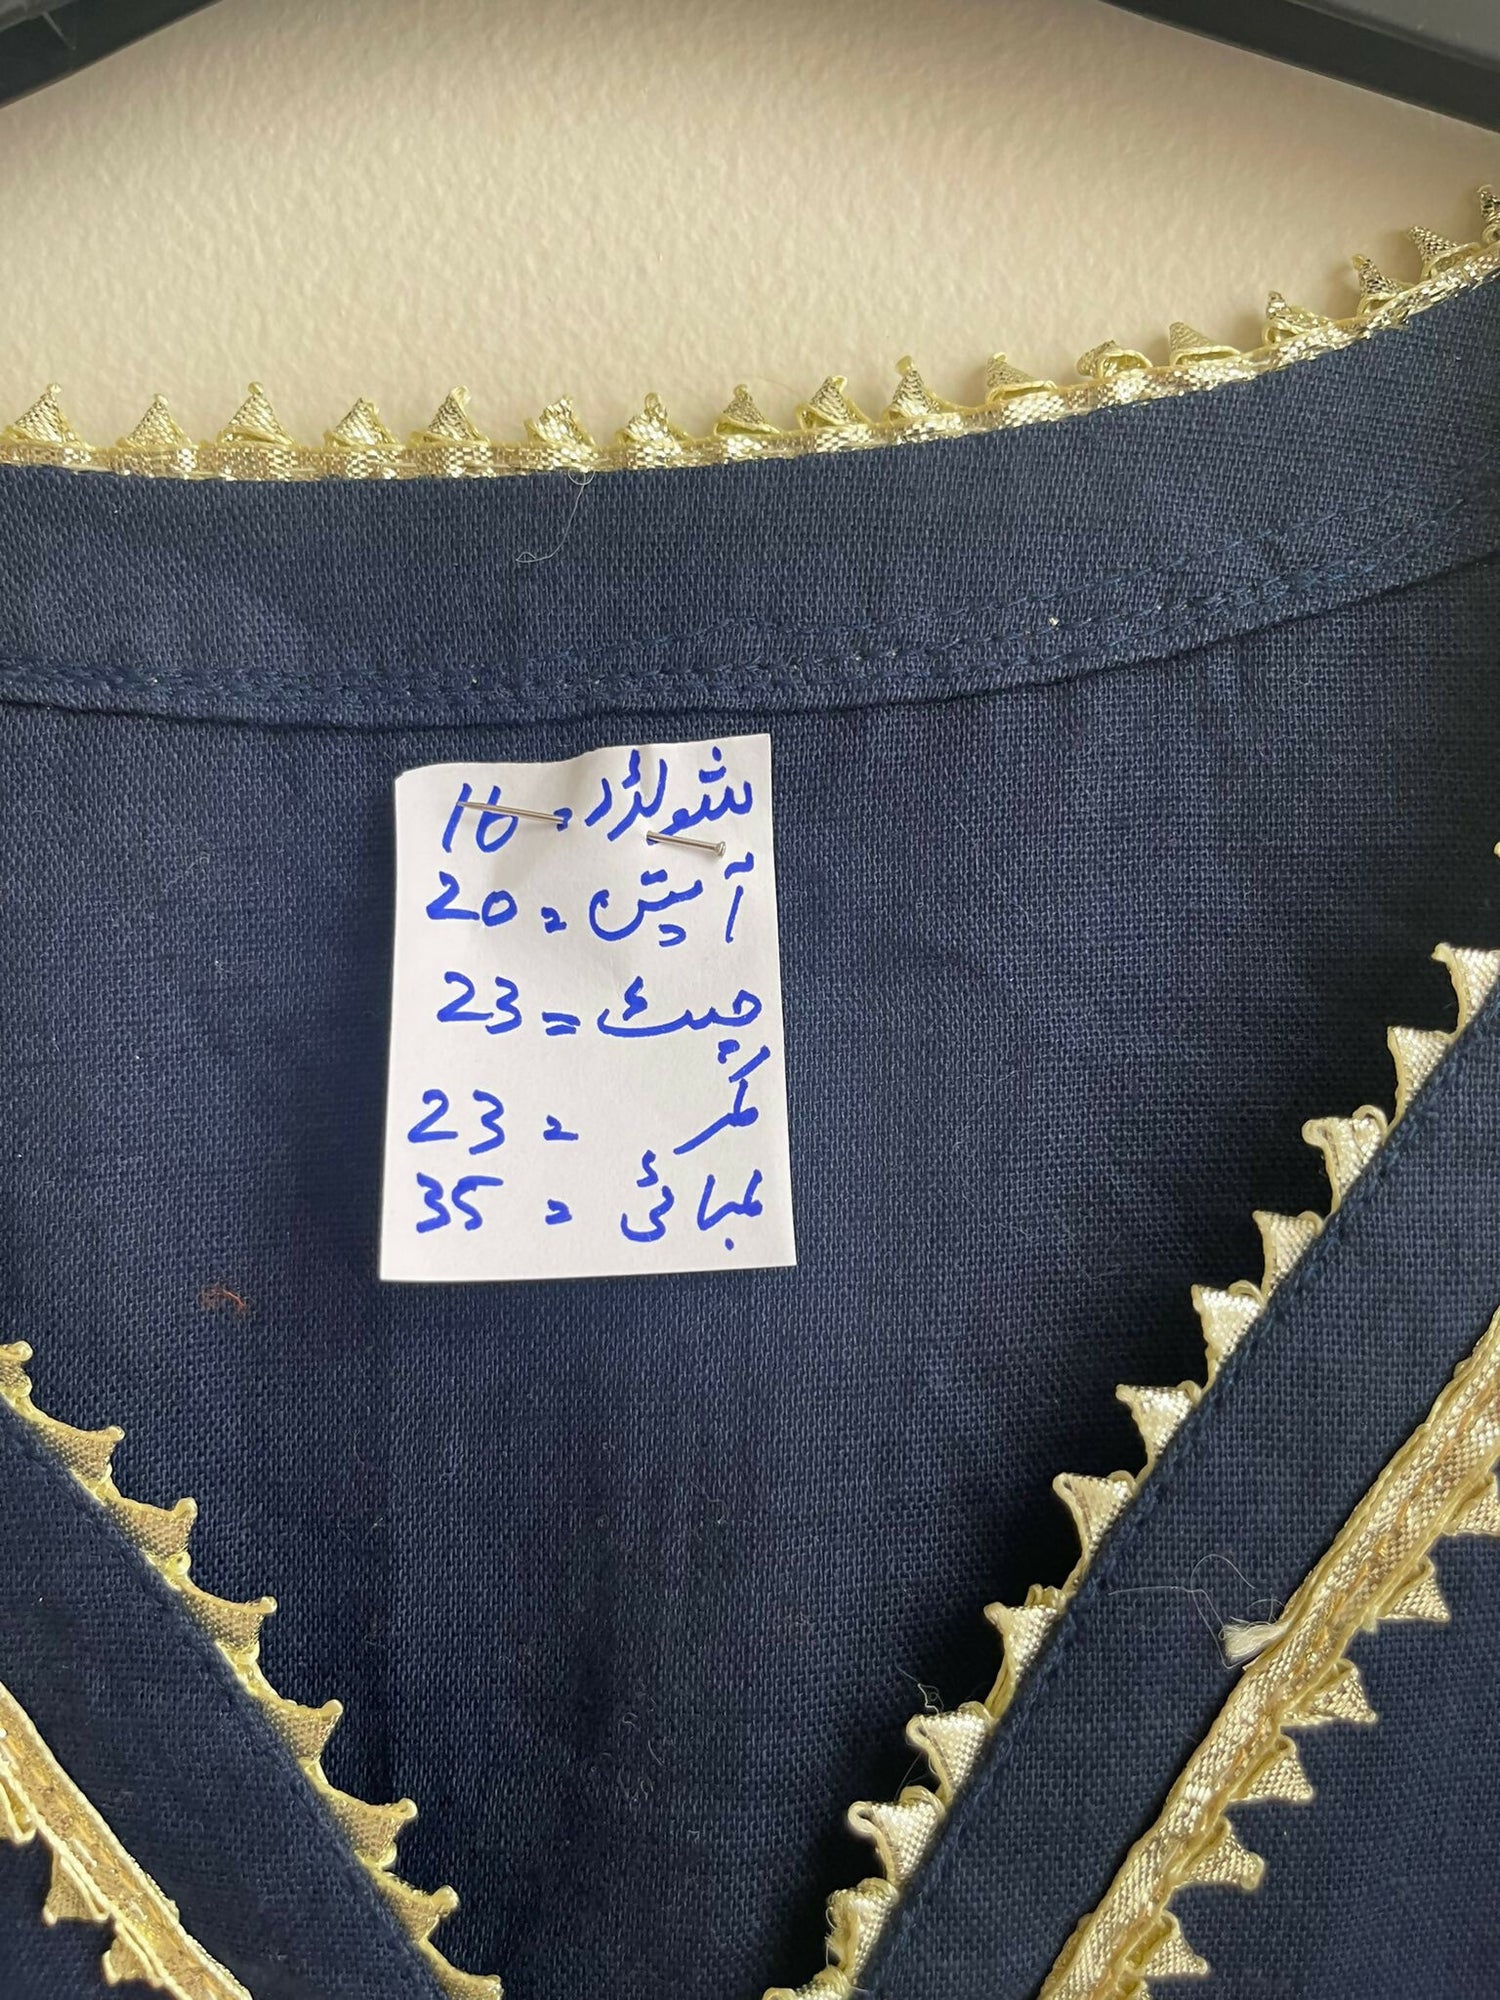 شولڈر = 16
آستین = 20
چیسٹ = 23
کمر = 23
لمبائی = 35